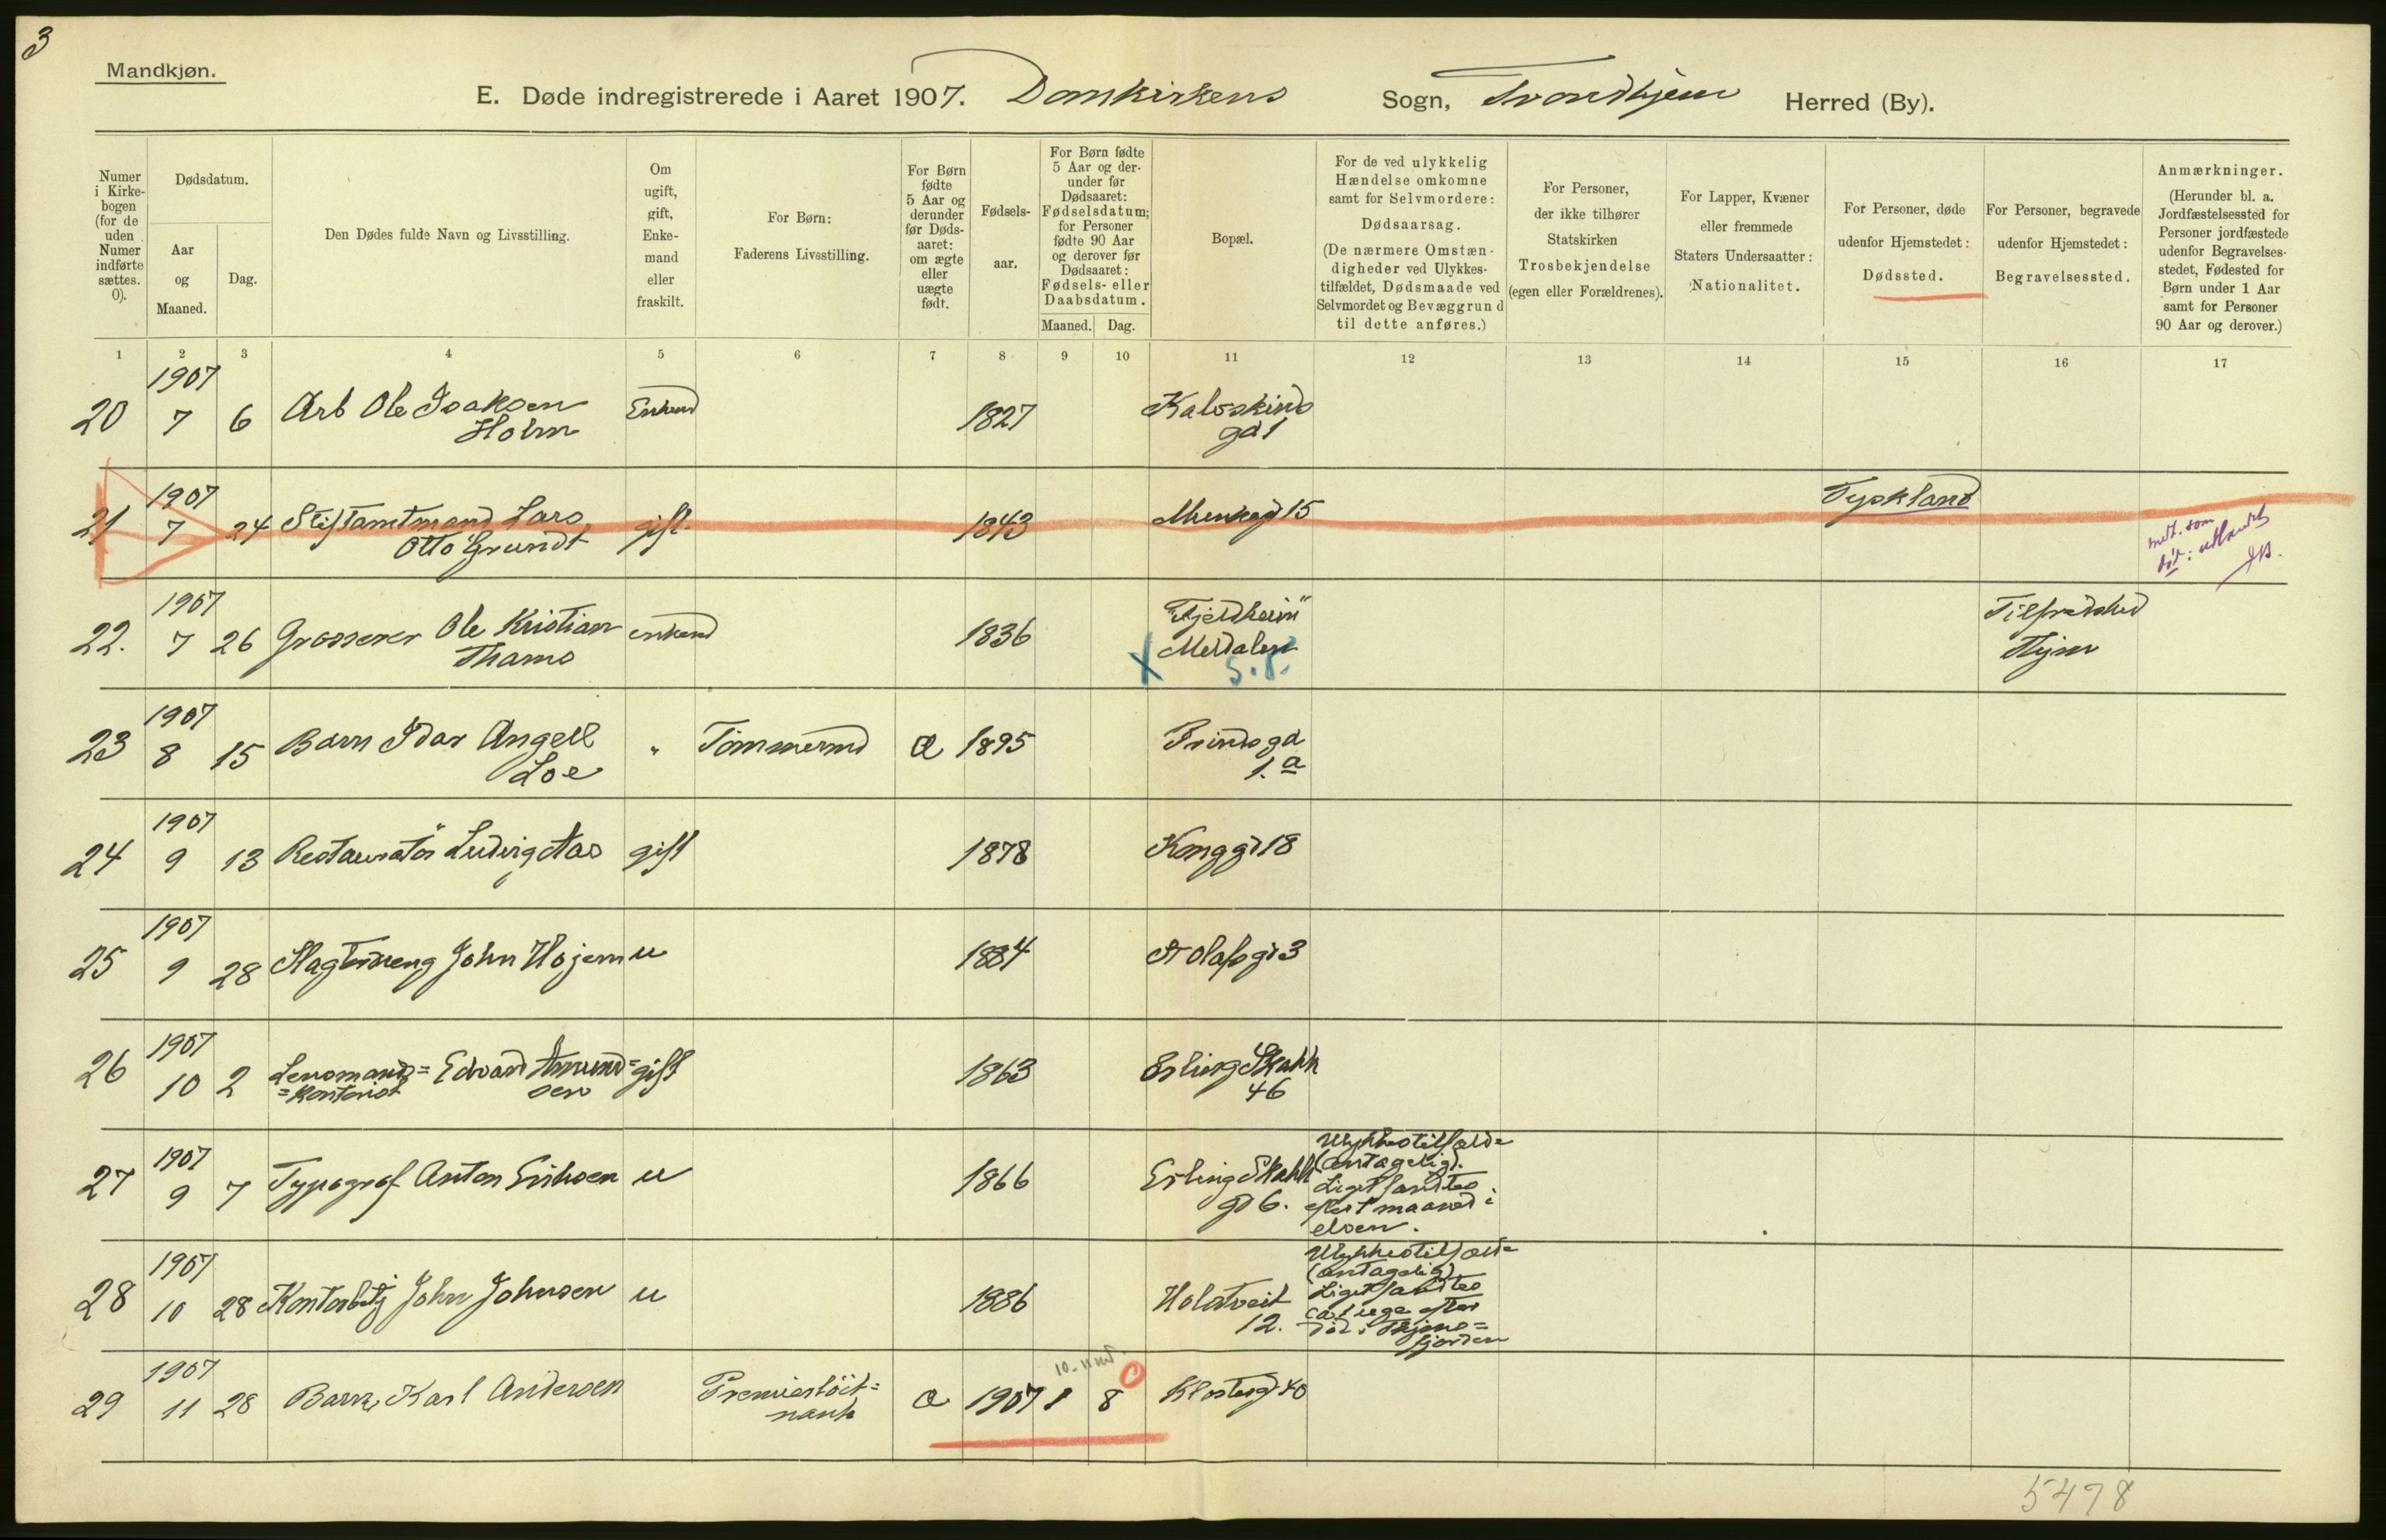 3
Mandkjøn.
E. Døde indregistrerede i Aaret 1907. Domkirkens Sogn, Trondhjem Herred (By).
Numer i Kirkebogen (for de uden Numer indførte sættes. 0).
Dødsdatum.
Aar og Maaned.
Dag.
Den Dødes fulde Navn og Livsstilling.
Om ugift, gift, Enkemand eller fraskilt.
For Børn: Faderens Livsstilling.
For Børn fødte 5 Aar og derunder før Dødsaaret: om ægte eller uægte født.
Fødselsaar.
For Børn fødte 5 Aar og derunder før Dødsaaret: Fødselsdatum; for Personer fødte 90 Aar og derover før Dødsaaret: Fødsels- eller Daabsdatum.
Maaned. Dag.
Bopæl.
For de ved ulykkelig Hændelse omkomne samt for Selvmordere: Dødsaarsag. (De nærmere Omstændigheder ved Ulykkestilfældet, Dødsmaade ved Selvmordet og Bevæggrund til dette anføres.)
For Personer, der ikke tilhører Statskirken Trosbekjendelse (egen eller Forældrenes).
For Lapper, Kvæner eller fremmede Staters Undersaatter: Nationalitet.
For Personer, døde udenfor Hjemstedet: Dødssted.
For Personer, begravede udenfor Hjemstedet: Begravelsessted.
Anmærkninger. (Herunder bl. a. Jordfæstelsessted for Personer jordfæstede udenfor Begravelsesstedet, Fødested for Børn under 1 Aar samt for Personer 90 Aar og derover.)
1 2 3 4 5 6 7 8 9 10 11 12 13 14 15 16 17
1907
20 7 6 Arb Ole Isaksen Enkemd 1827 Kalvskinds
Holm gd 1
1907 Tyskland
21 7 24 Stiftamtmand Lars gift 1843 Munkegd 15
Otto Grundt
medt. som
død i utlandet
1907 "Fjeldheim" Tilfredshed
22. 7 26 Grosserer Ole Kristian enkemd 1836 Meldalen Hjem
Thams
X S. T.
1907
23 8 15 Barn Idar Angell " Tømmermd Æ 1895 Prinds gd
Loe 1. a
1907
24 9 13 Restauratør Ludvig Aas gift 1878 Kong gd 18
1907
25 9 28 Slagtersveng John Højem u 1884 St Olafs gd 3
1907
26 10 2 Lensmands= Edvard Amund= gift 1863 Erling Skakk
=kontorist sen 46
1907 Ulykkestilfæld=
27 9 7 Typograf Anton Eriksen u 1866 Erling Skakk (antagelig).
gd 6. Liget fandtes
efter 1 maaned i
elven.
1907 Ulykkestilfæld=
28 10 28 Kontorbetj John Johnsen u 1886 Holstveit (antagelig)
12. Liget fandtes
ca 1 uge efter
død i Thjems=
fjorden
1907 10-11 md.
29 11 28 Barn, Karl Andersen Premierløit= Æ 1907 1 8 Klostergd 40
nant
5478